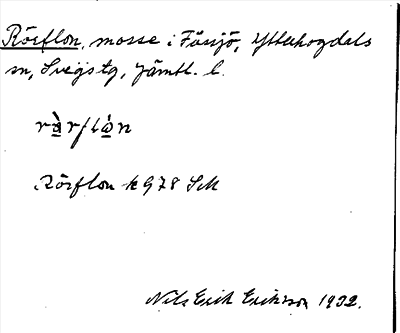 Rörflon, mosse i Fåssjö, Ytterhogdals
sn, Svegs tg, Jämtl. l.
Rörflon k 978 SM
Nils Erik Eriksson 1932.